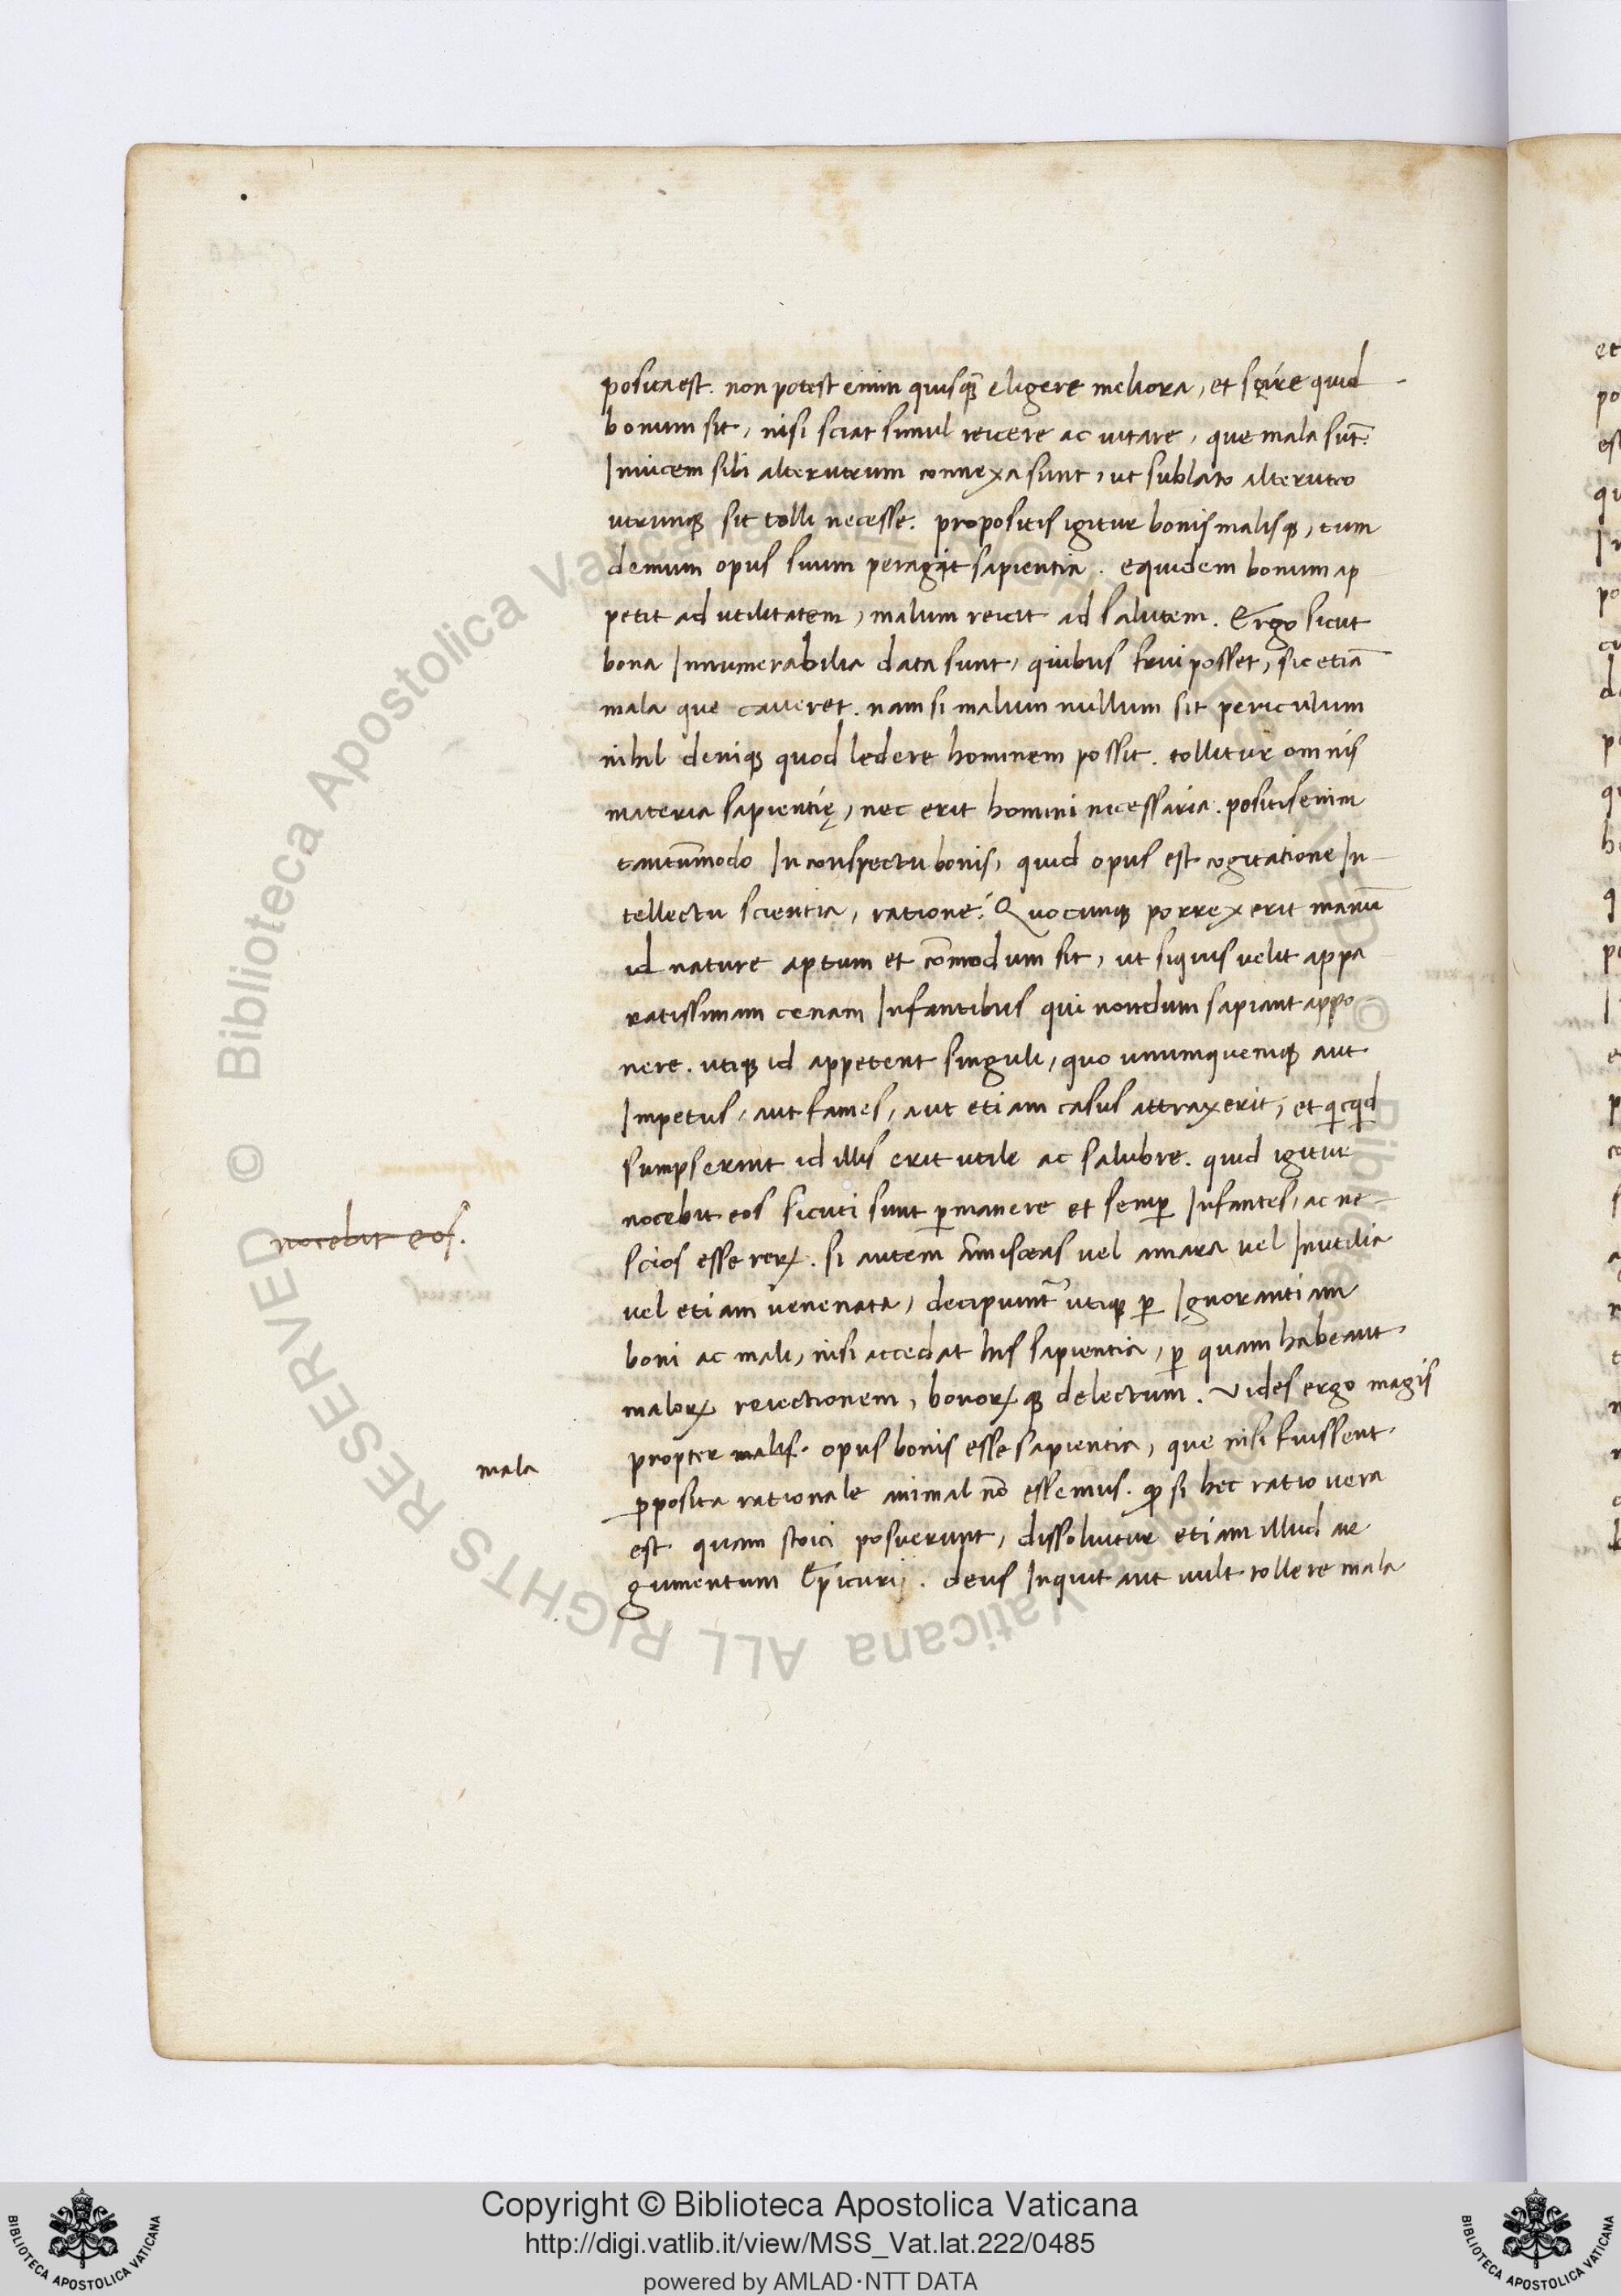 posita est. non potest enim quisq̃ eligere meliora, et scire quid
bonum sit, nisi sciat simul reicere ac vitare, que mala sut̃.
Invicem sibi alterutrum connexa sunt, ut sublato alterutro
utrumqꝫ sit tolli necesse. propositis igitur bonis malisqꝫ, tum
demum opus suum peragit sapientia. equidem bonum ap
petit ad utilitatem, malum reicit ad salutem. Ergo sicut
bona Innumerabilia data sunt, quibus frui posset, sic etiã
mala que caveret. nam si malum nullum sit periculum
nihil deniqꝫ quod ledere hominem possit. tollitur omnis
materia sapientię, nec erit homini necessaria. positis enim
tantũmodo In conspectu bonis, quid opus est cogitatione In-
tellectu scientia, ratione? Quocunqꝫ porrexerit manũ
id nature aptum et cõmodum sit, ut siquis velit appa
ratissimam cenam Infantibus qui nondum sapiant appo-
nere. utiqꝫ id appetent singuli, quo unumquemqꝫ aut
Impetus, aut fames, aut etiam casus attraxerit, et qicqd
sumpserint id illis erit utile ac salubre. quid igitur
nocebit eos sicuti sunt ꝑmanere et semꝑ Infantes, ac ne-
scios esse rerꝝ. si autem Ammisceas vel amara vel Inutilia
vel etiam venenata, decipiunt᷑ utiqꝫ ꝑ Ignorantiam
boni ac mali, nisi accedat his sapientia, ꝑ quam habeant
malorꝝ reiectionem, bonorꝝqꝫ delectum. Vides ergo magis
propter malis. opus bonis esse sapientia, que nisi fuissent
ꝓposita rationale animal nõ essemus. ꝙ si hec ratio vera
est quam stoici posuerunt, dissolvitur etiam illud ar
gumentum Epicurij. deus Inquit aut vult tollere mala
nocebit eos.
mala
© Biblioteca Apostolica Vaticana ALL RIGHTS RESERVED
© Biblioteca Apostolica Vaticana ALL RIGHTS RESERVED
Copyright © Biblioteca Apostolica Vaticana
http://digi.vatlib.it/view/MSS_Vat.lat.222/0485
powered by AMLAD·NTT DATA
BIBLIOTECA APOSTOLICA VATICANA
BIBLIOTECA APOSTOLICA VATICANA